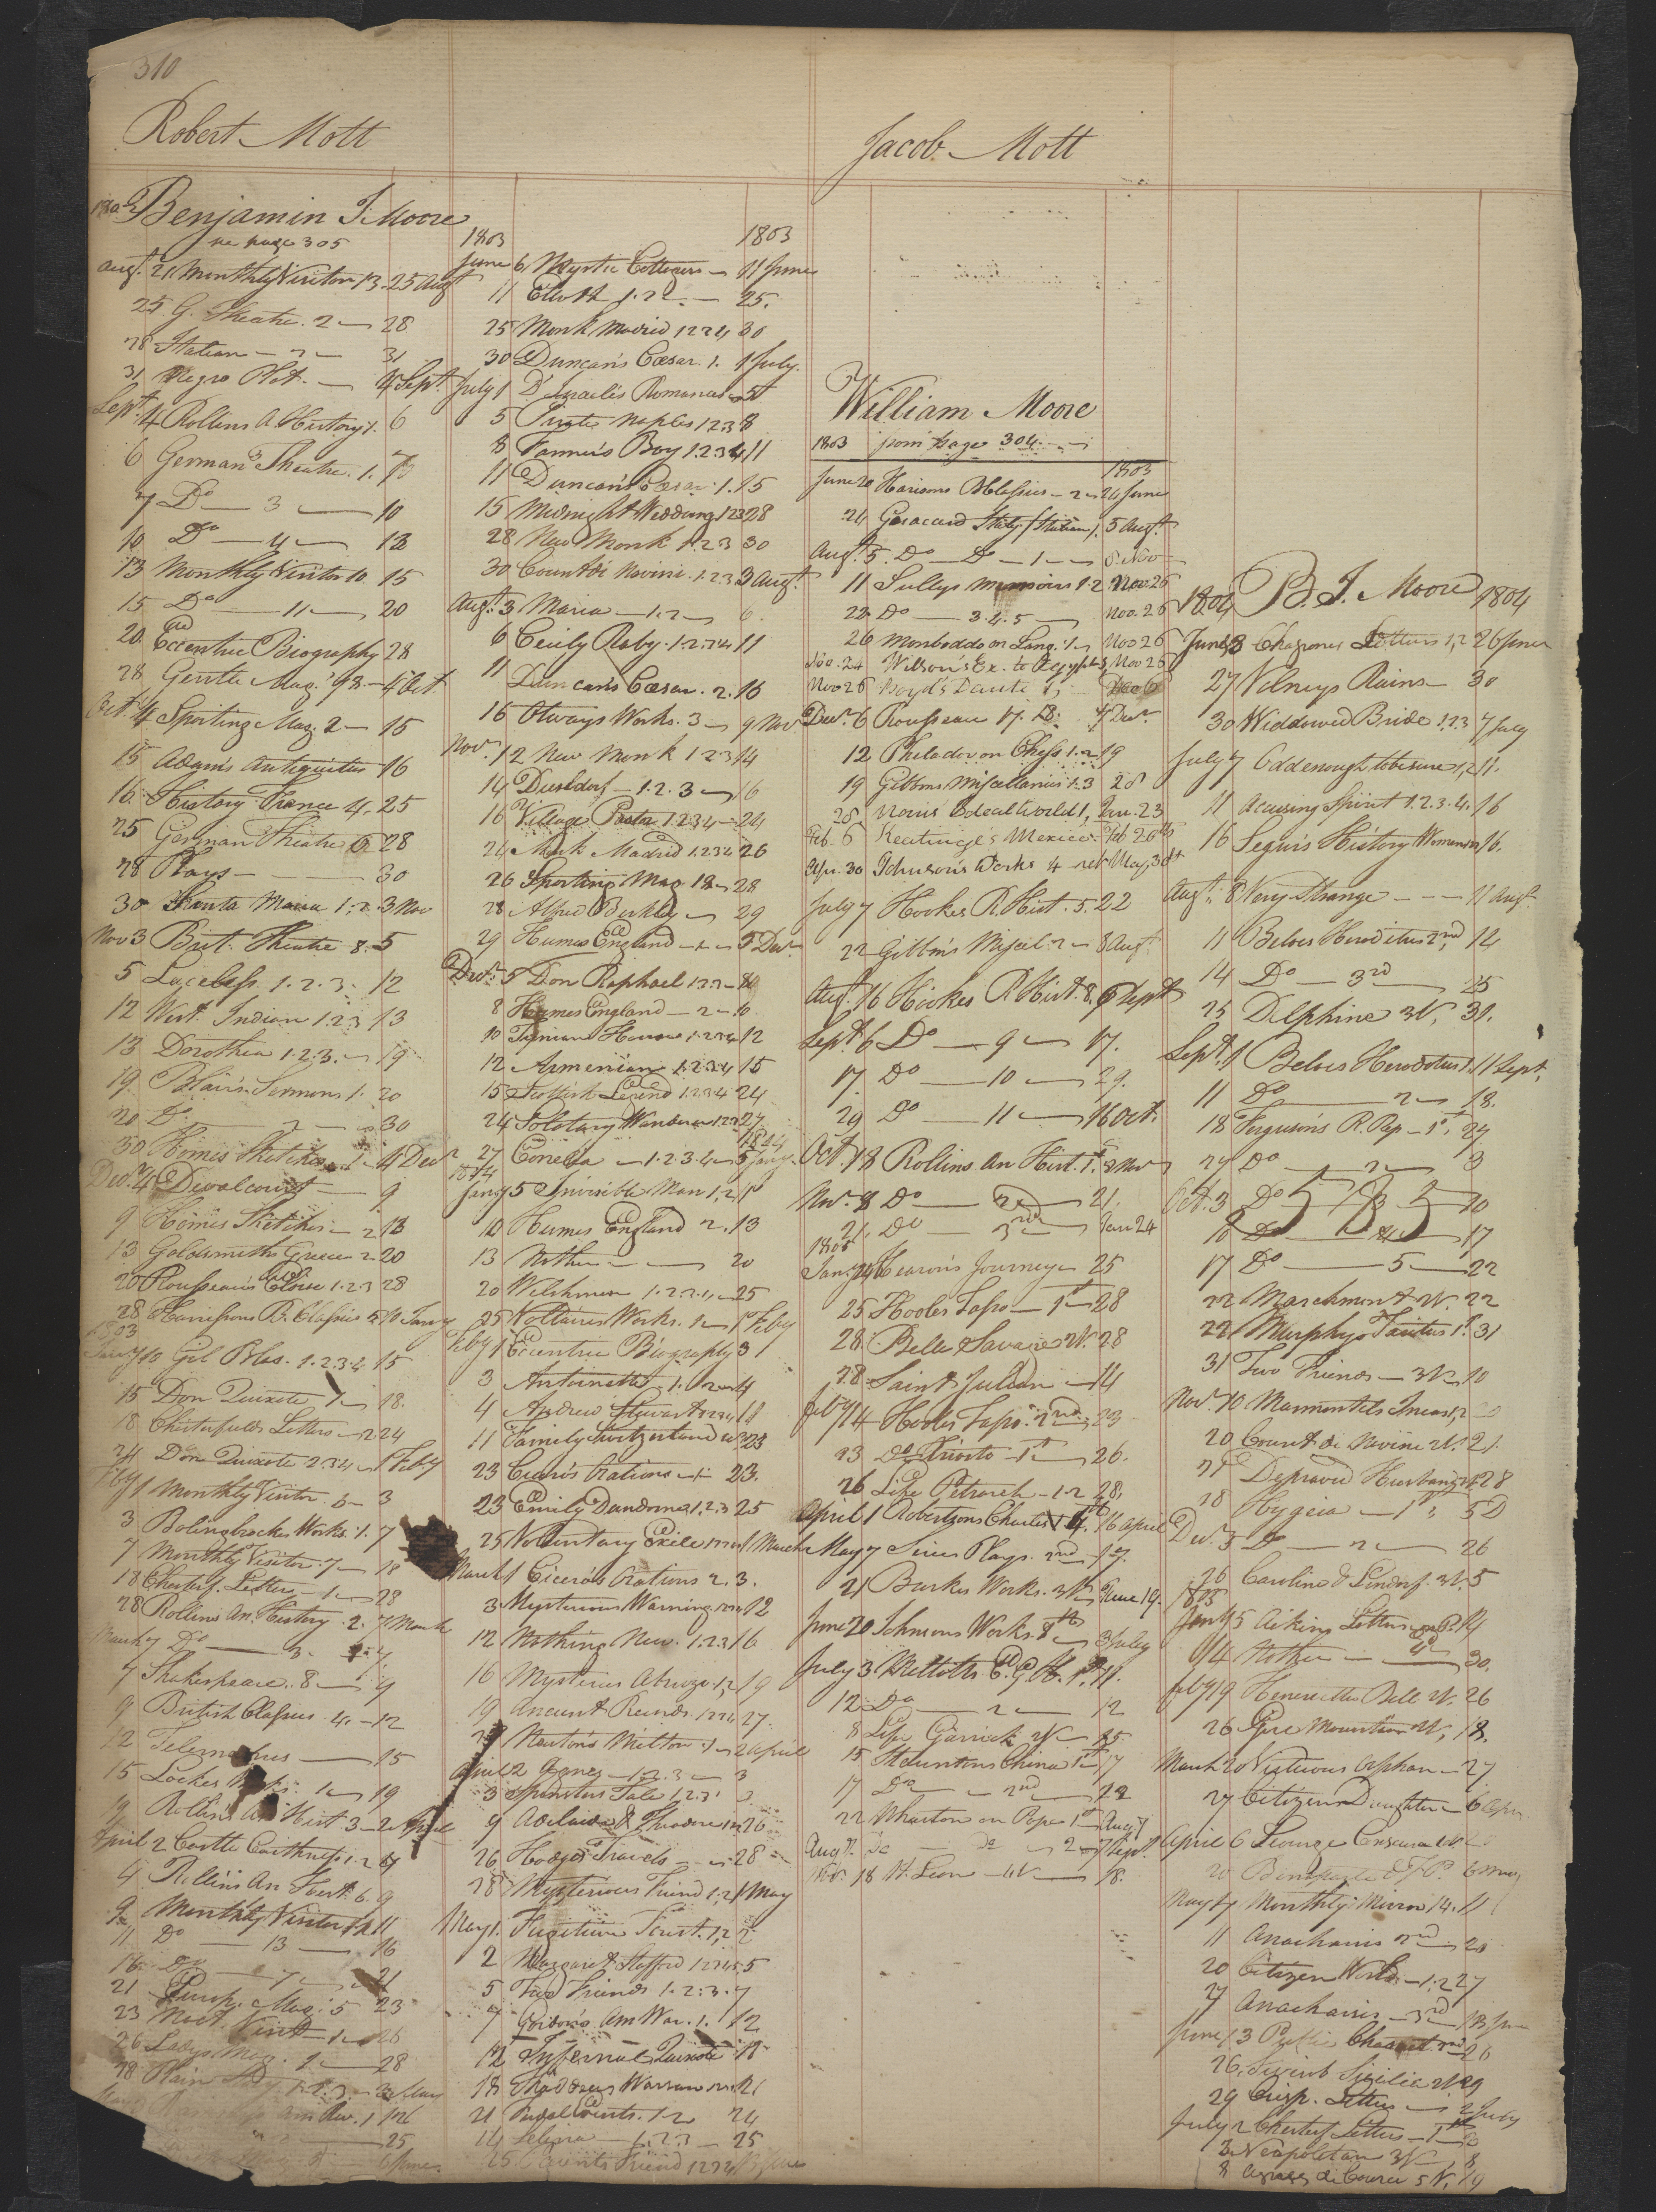 310
Robert Mott
1802 Benjamin J. Moore
see page 305
Augt. 21 Monthly Visitor 13. 25 Augt
25 G. Theatre. 2 — 28
28 Italian — 2 — 31
31 Negro Plot. — 4 Sept.
Sept. 4 Rollins A. History 1. 6
6 German Theatre. 1. 7
7 Do — 3 — 10
10 Do — 4 — 13
13 Monthly Visitor 10 15
15 Do — 11 — 20
20 Eccentric Biography 28
28 Gentle Mag. 98. — 4 Oct
Oct. 4 Sporting Mag. 2 — 15
15 Adams Antiquities 16
16 History France 4. 25
25 German Theatre 6 28
28 Plays — 30
30 Santa Maria 1.2 3 Nov
Nov 3 Brit. Theatre 8. 5
5 Loveless 1.2.3. 12
12 West Indian 1.2.3 13
13 Dorothea 1.2.3. — 19
19 Blair's Sermons 1. 20
20 Do — 2 — 30
30 Homes Sketches — 1 — 4 Decr
Decr. 4 Devalcourt — 9
9 Homes Sketches — 2 13
13 Goldsmiths Greece 2 20
20 Rousseau's Eloise 1.2.3 28
28 Harrisons B. Classics 5 10 Jany
1803
Jany 10 Gil Blas. 1.2.3.4 15
15 Don Quixote 1 — 18.
18 Chesterfields Letters — 2 24
24 Don Quixote 2.3.4 — 1 Feby
Feby 1 Monthly Visitor. 6 — 3
3 Bolingbrockes Works. 1. 7
7 Monthly Visitor. 7 — 18
18 Chesterf. Letters — 1 — 28
28 Rollins An. History. 2. 7 March
March 7 Do — 3. 7
7 Shakespeare. 8 — 9
9 British Classics. 4. — 12
12 Telemachus — 15
15 Lockes Works. 1 — 19
19 Rollins An Hist. 3 — 2 April
April 2 Castle Caithness. 1.2 4
4 Rollins An Hist. 6. 9
9 Monthly Visitor 12 11
11 Do — 13 — 16
16 Do — 7 — 21
21 Europ. Mag. 5 23
23 Noct. Visit — 1 — 26
26 Ladys Mag. 2 — 28
28 Plain
25
1803 1803
June 6 Mystic Cottager — 11 June
11 Elliott 1.2 — 25.
25 Monk Madrid 1.2.3.4 30
30 Duncan's Cæsar. 1. 1 July.
July 1 D'Israeli's Romances — 5
5 Pirate Naples 1.2.3 8
8 Farmer's Boy 1.2.3.4 11
11 Duncan's Cæsar. 1. 15
15 Midnight Wedding 1.2.3 28
28 New Monk 1.2.3 30
30 Count di Novini. 1.2.3 3 Augt.
Augt. 3 Maria — 1.2 — 6.
6 Cecily Raby. 1.2.3.4 11
11 Duncan's Cæsar. 2. 16
16 Otways Works. 3 — 9 Nov
Nov. 12 New Monk 1.2.3 14
14 Dusseldorf — 1.2.3 — 16
16 Village Pastor 1.2.3.4 — 24
24 Monk Madrid 1.2.3.4 26
26 Sporting Mag 18 — 28
28 Alfred Berkley — 29
29 Humes England — 1 — 5 Decr.
Decr. 5 Don Raphael 1.2.3 — 8
8 Humes England — 2 — 10
10 Tynian House 1.2.3.4 12
12 Armenian 1.2.3.4 15
15 Scottish Legend 1.2.3.4 24
24 Solitary Wanderer 1.2.3 27
27 Correlia — 1.2.3.4 — 5 Jany
1804 1804
Jany 5 Invisible Man 1.2 10
10 Humes England 2. 13
13 Mother — 20
20 Welshman 1.2.3.4 — 25
25 Voltaires Works. 1 — 1 Feby
Feby 1 Eccentric Biography 3
3 Antoinette 1.2 — 4
4 Andrew Stewart 1.2.3.4 11
11 Family Switzerland 23
23 Cicero's Orations — 1 — 23.
23 Emily Dundorne 1.2.3 25
25 Voluntary Exile 1 March
March 1 Cicero's Orations 2. 3.
3 Mysterious Warning 12
12 Nothing New. 1.2.3 16
16 Mysteries Abruzzo 1.2 19
19 Ancient Records 1.2.3.4 27.
27 Newton's Milton. 1 — 2 April
April 2 Agnes — 1.2.3 — 3
3 Spinsters Tale 1.2.3
9 Adelaide & Theodore 1.2.3 26
26 Hodges Travels — 28
28 Mysterious Friend 1.2 1 May
May 1. Fugitive Count. 1.2 2
2 Margaret Stafford 1.2.3.4.5 5
5 Two Friends 1.2.3. 7
7 Gordons Am War. 1. 12
12 Infernal Quixote 18
18 Thaddeus Warsaw 21
21 Rival Counts. 1.2 24
24 Selima — 1.2.3 — 25
25. Parents Friend 1.2.3.4
Jacob. Mott
William Moore
1803 from page 304.
1803
June 20 Harisons B. Classics — 2 — 24 June
24 Gosacard Italy (Italian) 1. 5 Augt.
Augt. 5. Do — Do — 1 — 8 Nov
11 Sullys Memoirs 1.2 Nov. 26
22 Do 3.4.5 — Nov. 26
26 Monboddo on Lang. 1 — Nov 26
Nov. 24 Wilson's Ex. to Egypt Nov 26
Nov 26 Boyd's Dante 1.
Decr. 6 Rousseau 17. 18. 7 Decr.
12 Philador on Chess 1.2 19
19 Gibbons Miscellanies 1.3 28
28 Norris Ideal World 1, Jan. 23
Feb. 6 Keatinge's Mexico Feb 20th
Apr. 30 Johnson's Works 4 ret May 30th
July 7 Hookes R. Hist. 5. 22
22 Gibbon's Miscel. 2 — 8 Augt.
Augt. 16 Hookes R. Hist. 8. 6 Sept
Sept. 6 Do — 9 — 17.
17 Do — 10 — 29.
29 Do — 11 — 16 Oct.
Oct. 18 Rollins An Hist. 1st. 8 Nov
Nov. 8 Do — 2nd — 21.
21. Do — 3rd — Jan 24
1805
Jan. 24 Hearons Journey — 25
25 Hooles Tasso — 1st — 28
28. Belle Savage 28
28. Saint Julian — 14
Feby 14 Hooles Tasso. 2nd. 23
23 do Ariosto — 1st — 26.
26 Life Petrarch — 1.2 28.
April 1 Robertsons Charles 16 April
May 7 Siries Plays. 2nd. 17.
21 Burkes Works. 3 V. June 19.
June 20 Johnsons Works. 8th — 3 July
July 3 Mellotts C. G. H. 1st. 11.
12 Do — 2 — 12
8 Life Garrick 2V — 15.
15 Staunton's China 1st 17
17 Do — 2nd 22
22 Wharton on Pope 1st Aug 7
Augt. 7 do — do — 2 — 7 Sept.
Nov. 18 St. Leon — 18.
1804 B. J. Moore 1804
June 23 Chapones Letters 1.2 26 June
27 Volneys Ruins — 30
30 Widdowed Bride 1.2.3 7 July
July 7 Oddenough to be sure 1.2 11.
11 Accusing Spirit 1.2.3.4. 16
16 Segur's History Women 16.
Augt. 8 Very Strange — 11 Augt.
11 Beloes Heroditus 2nd. 14
14 Do — 3rd — 25
25 Delphine 3V, 31.
Sept. 1 Beloes Herodotus 1. 11 Sept.
11 Do — 2 — 18.
18 Ferguson's R. Rep — 1st. 27
27 Do — 2 — 3
Oct. 3 Do — 3 — 10
10 Do — 4 — 17
17 Do — 5 — 22
22 Marchmont 22
22 Murphys Tacitus 1st. 31
31 Two Friends — 3V. 10
Nov. 10 Marmontels Incas 1,2
20 Count di Novini 2V. 21.
21 Depraved Husband 28
28 Hygeia — 1st. 5 D
Decr. 5 Do — 2 — 26
26 Caroline of Lindorf. 3V. 5
1805
Jany 5 Aikins Letters 14
14 Mother — 30.
Feby 19 Henrietta Bell 2V. 26
26 Pyre Mountain 18.
March 20 Virtuous Orphan — 27
27 Citizens Daughter — 6 Apr
April 6 George
20 6 May
May 7 Monthly Mirror 14. 11
11 Anacharsis 2nd — 20
20 Citizen World — 1.2 27
27 Anacharsis — 3rd 13 June
June 13 Public Charact. 26
26. Sicilia 2V. 29
29 Letters — 2 July
July 2 Chesterf Letters — 1 — 3
3 Neapolitan 3V — 8
8 Agnes de Courci 5 V. 19